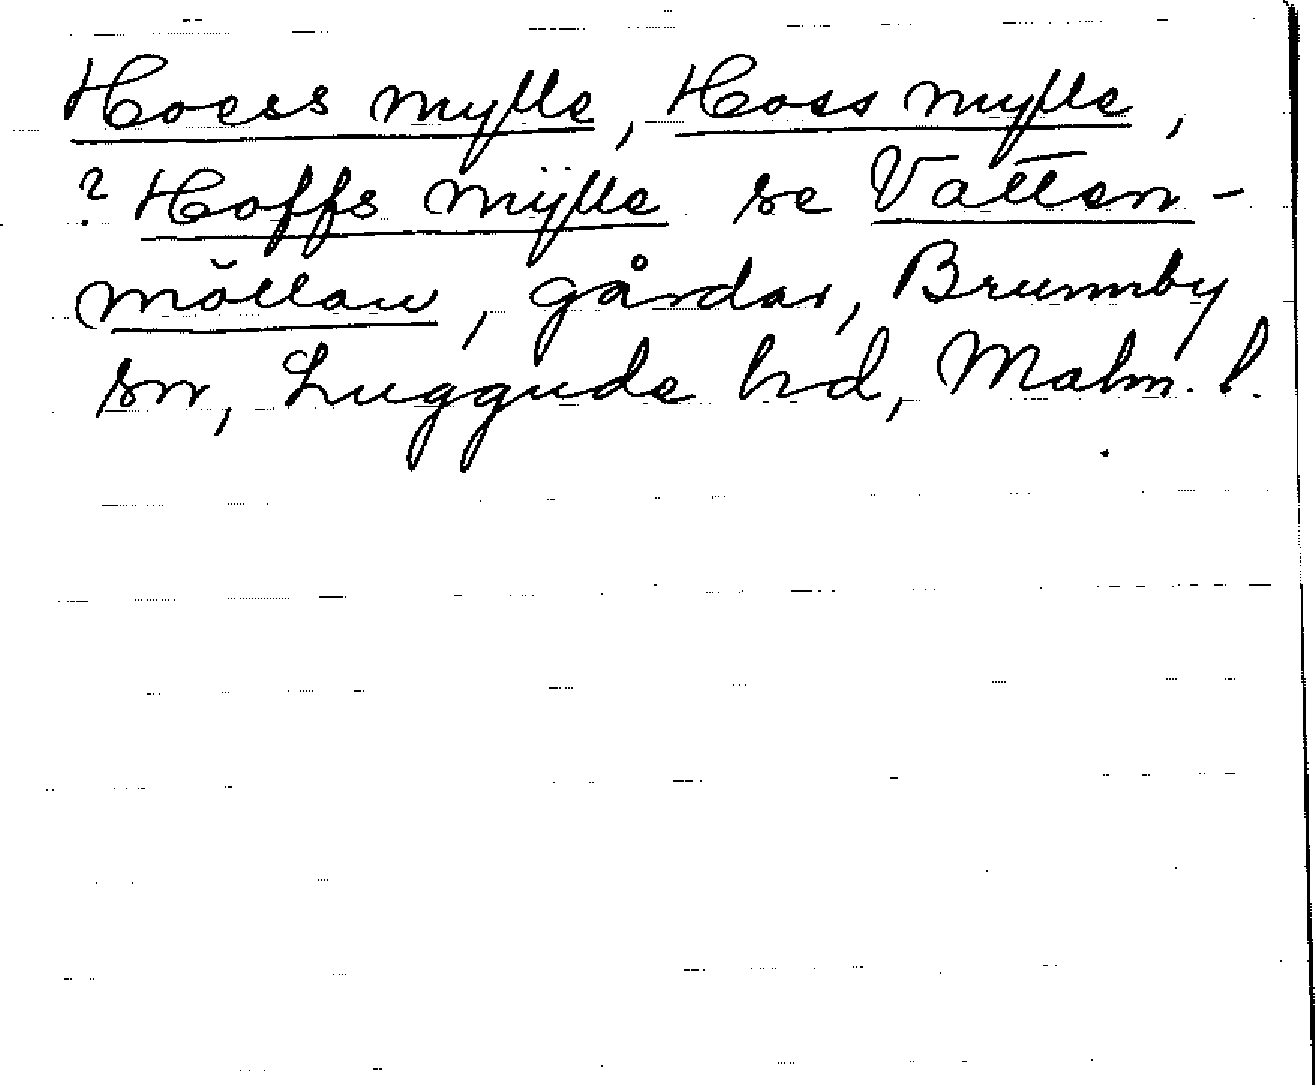 Hoess mylle, Hoss mylle,
? Hoffs mÿlle se Vatten-
möllan, gårdar, Brunnby
sn, Luggude hd, Malm. l.